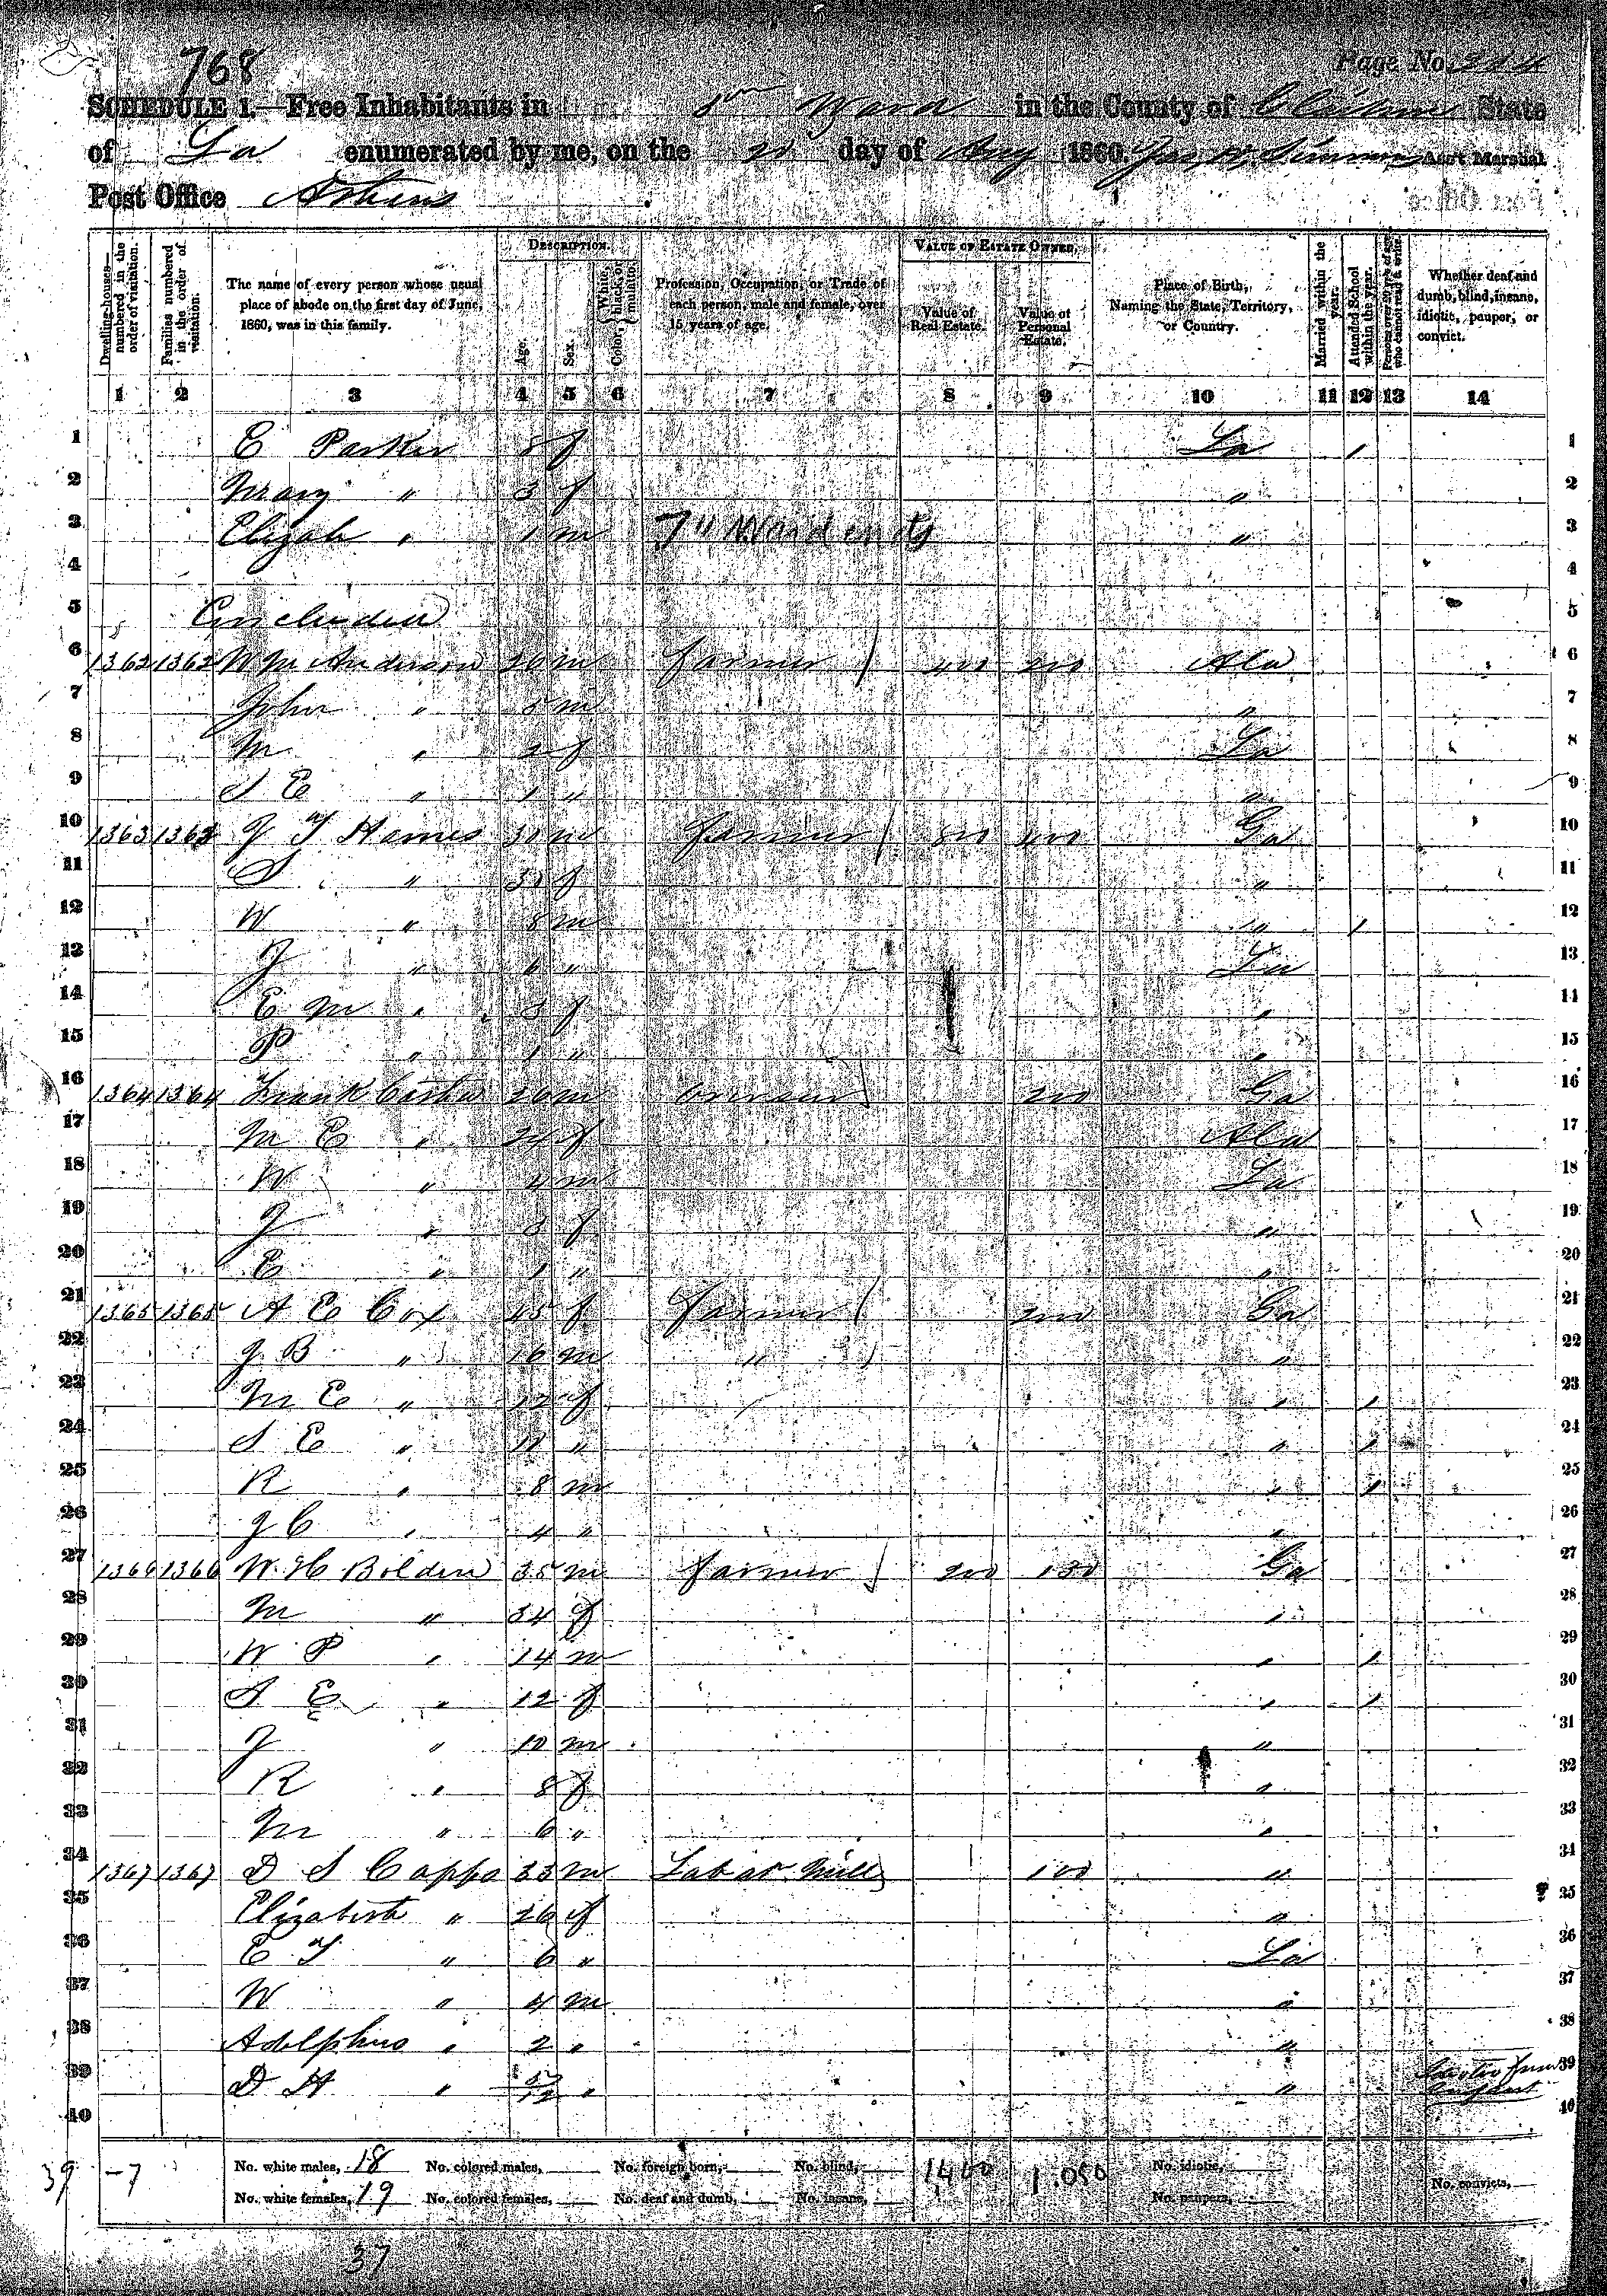 768
Page No.
SCHEDULE 1.—Free Inhabitants in 8th Ward in the County of Claiborne State
of La enumerated by me, on the 20 day of Aug 1860. Jas. Ass't Marshal
Post Office Athens
Dwelling-houses—numbered in the order of visitation.
Families numbered in the order of visitation.
The name of every person whose usual place of abode on the first day of June, 1860, was in this family.
DESCRIPTION.
Age.
Sex.
Color, White, black, or mulatto.
Profession, Occupation, or Trade of each person, male and female, over 15 years of age.
VALUE OF ESTATE OWNED.
Value of Real Estate.
Value of Personal Estate.
Place of Birth, Naming the State, Territory, or Country.
Married within the year.
Attended School within the year.
Persons over 20 y'rs of age who cannot read & write.
Whether deaf and dumb, blind, insane, idiotic, pauper, or convict.
1 2 3 4 5 6 7 8 9 10 11 12 13 14
1 E Parker 8 f La / 1
2 Mary " 3 f " 2
3 Elizah " 1 m 7" Ward ends " 3
4 4
5 Concluded 5
6 1362 1362 Wm Anderson 26 m farmer 400 200 Ala 6
7 John " 5 m " 7
8 M " 2 f La 8
9 S E " 1 " " 9
10 1363 1363 J T Hames 30 m farmer 800 400 Ga 10
11 S " 30 f " 11
12 W " 8 m " / 12
13 J " 6 " La 13
14 E M " 3 f " 14
15 P " 1 " " 15
16 1364 1364 Frank 26 m 200 Ga 16
17 M E " 24 f Ala 17
18 W " 4 m La 18
19 J " 3 f " 19
20 E " 1 " " 20
21 1365 1365 A E Cox 45 f farmer 200 Ga 21
22 J B " 16 m " " 22
23 M E " 12 f " / 23
24 S E " 10 " " / 24
25 R " 8 m " / 25
26 J C " 4 " " 26
27 1366 1366 W. H Bolden 35 m farmer 200 150 Ga 27
28 M " 34 f " 28
29 W P " 14 m " / 29
30 S E " 12 f " / 30
31 J " 10 m " 31
32 R " 8 f " 32
33 M " 6 " " 33
34 1367 1367 D S Capps 33 m Lab at Mill 100 " 34
35 Elizabeth " 26 f " 35
36 E T " 6 " La 36
37 W " 4 m " 37
38 Adolphus " 2 " " 38
39 D H " " " 39
40 40
39 -7 No. white males, 18 No. colored males, No. foreign born, No. blind, 1400 1.050 No. idiotic,
No. white females, 19 No. colored females, No. deaf and dumb, No. insane, No. paupers, No. convicts,
37